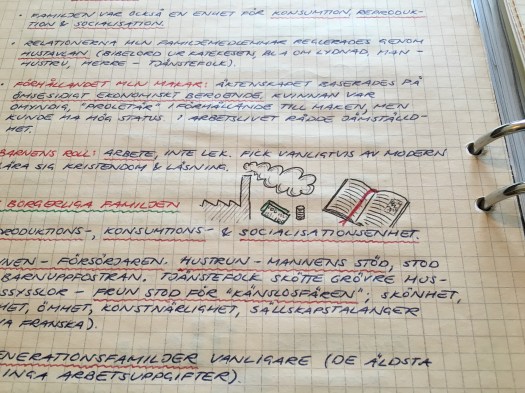 • FAMILJEN VAR OCKSÅ EN ENHET FÖR KONSUMTION, REPRODUK-
TION & SOCIALISATION.
• RELATIONERNA MLN FAMILJEMEDLEMMAR REGLERADES GENOM
HUSTAVLAN (BIBELORD UR KATEKESEN, BL.A OM LYDNAD, MAN -
HUSTRU, HERRE - TJÄNSTEFOLK).
• FÖRHÅLLANDET MLN MAKAR: ÄKTENSKAPET BASERADES PÅ
ÖMSESIDIGT EKONOMISKT BEROENDE. KVINNAN VAR
OMYNDIG, "PROLETÄR" I FÖRHÅLLANDE TILL MAKEN, MEN
KUNDE HA HÖG STATUS. I ARBETSLIVET RÅDDE JÄMSTÄLLD-
HET.
BARNENS ROLL: ARBETE, INTE LEK. FICK VANLIGTVIS AV MODERN
LÄRA SIG KRISTENDOM & LÄSNING.
BORGERLIGA FAMILJEN
RODUKTIONS-, KONSUMTIONS- & SOCIALISATIONSENHET.
NNEN - FÖRSÖRJAREN. HUSTRUN - MANNENS STÖD, STOD
BARNUPPFOSTRAN. TJÄNSTEFOLK SKÖTTE GRÖVRE HUS-
SSYSSLOR - FRUN STOD FÖR "KÄNSLOSFÄREN", SKÖNHET,
HET, ÖMHET, KONSTNÄRLIGHET, SÄLLSKAPSTALANGER
A FRANSKA).
ENERATIONSFAMILJER VANLIGARE (DE ÄLDSTA
INGA ARBETSUPPGIFTER).